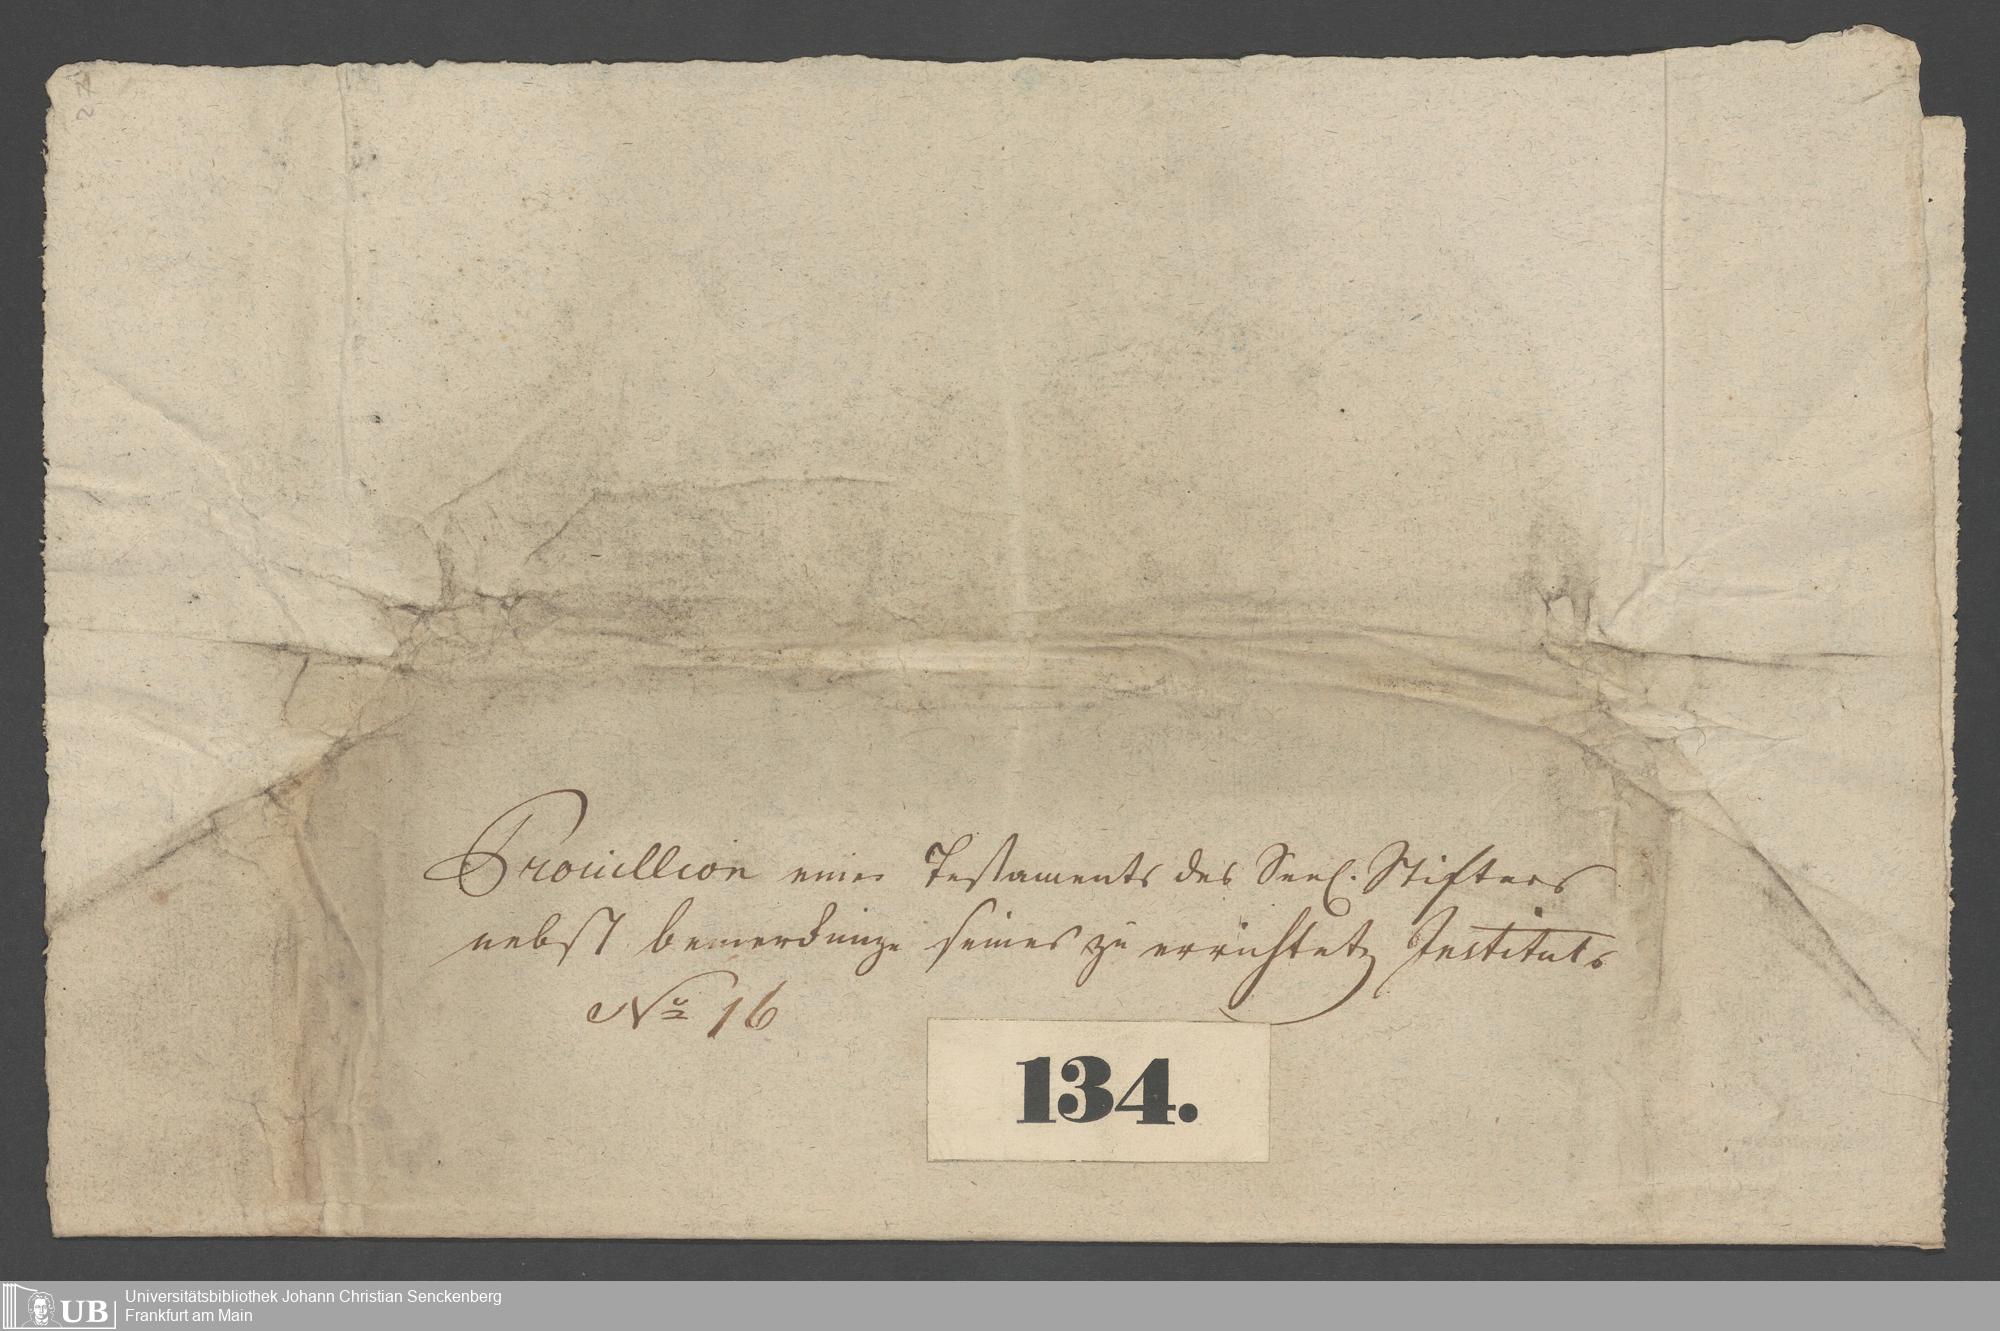 Brouillion eines Testaments des Seel. Stifters
nebst bemerckung seines zu errichtet Instituts
No 16
134.
UB
Universitätsbibliothek Johann Christian Senckenberg
Frankfurt am Main